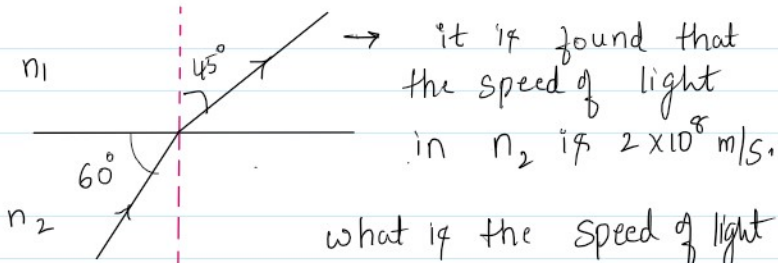 n1
45°
→ it is found that
the speed of light
in n2 is 2×10⁸ m/s.
60°
n2
what is the speed of light